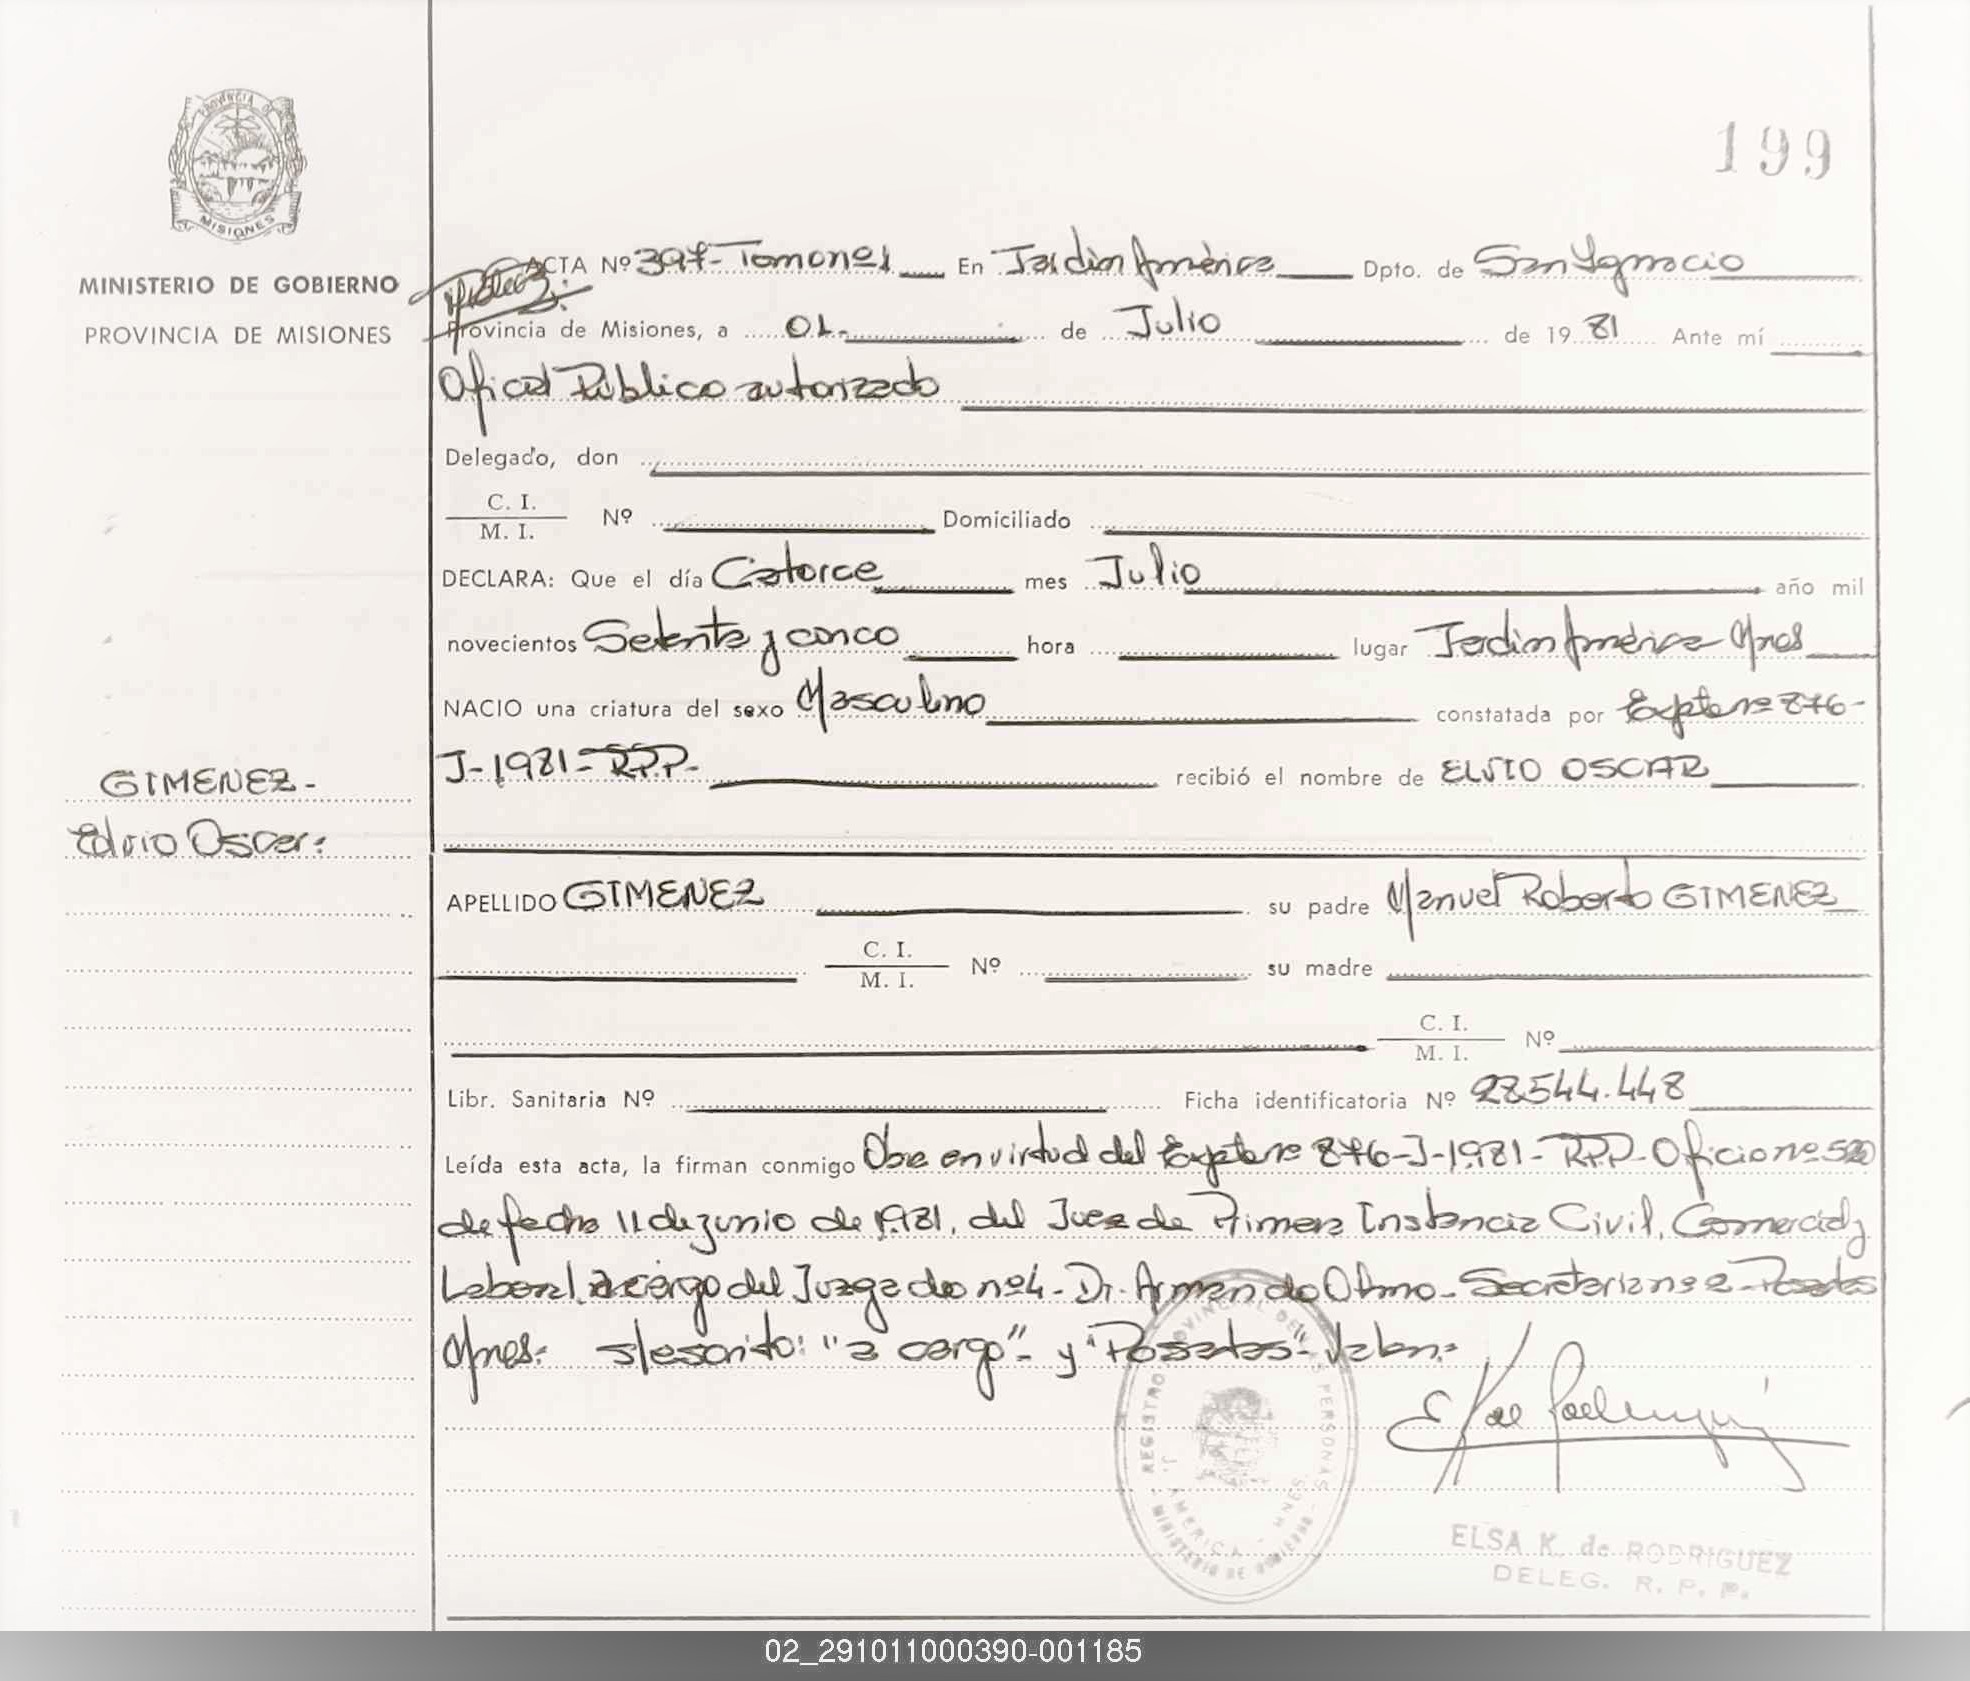 199
PROVINCIA DE
MISIONES
MINISTERIO DE GOBIERNO
PROVINCIA DE MISIONES
ACTA Nº 397- Tomo nº1 En Jardin América Dpto. de San Ignacio
Provincia de Misiones, a 01- de Julio de 1981 Ante mí
Oficial Público autorizado
Delegado, don
C. I.
M. I. Nº Domiciliado
DECLARA: Que el día Catorce mes Julio año mil
novecientos Setenta y cinco hora lugar Jardin América Mnes
NACIO una criatura del sexo Masculino constatada por Expte nº 876-
J-1981-R.P.P.- recibió el nombre de ELVIO OSCAR
GIMENEZ-
Oscar:
APELLIDO GIMENEZ su padre Manuel Roberto GIMENEZ
C. I.
M. I. Nº su madre
C. I.
M. I. Nº
Libr. Sanitaria Nº Ficha identificatoria Nº 28.544.448
Leída esta acta, la firman conmigo en virtud del Expte nº 876-J-1981-R.P.P.- Oficio nº 520
de fecha 11 de junio de 1981, del Juez de Primera Instancia Civil, Comercial y
Laboral a cargo del Juzgado nº4- Dr. Armando Olmo- Secretaria nº 2- Posadas
Mnes: s/escrito: "a cargo"- y "Posadas"- Valen:-
REGISTRO PROVINCIAL DE LAS PERSONAS
J. AMERICA - MNES.
MINISTERIO DE GOBIERNO
ELSA K. de RODRIGUEZ
DELEG. R. P. P.
02_291011000390-001185